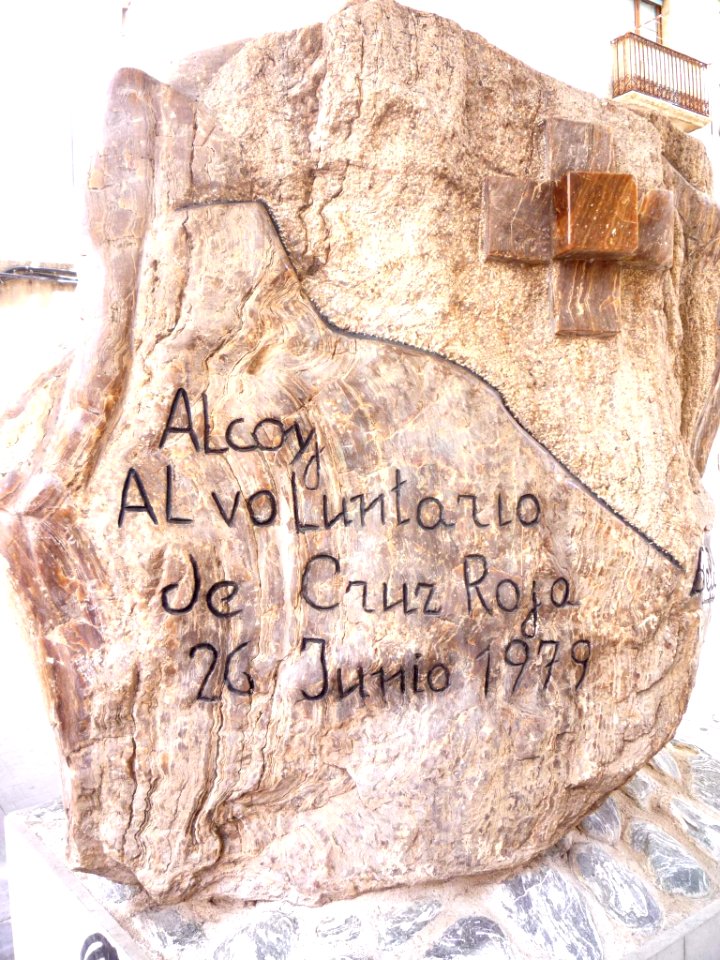 ALcoy
AL voLuntario
de Cruz Roja
26 Junio 1979